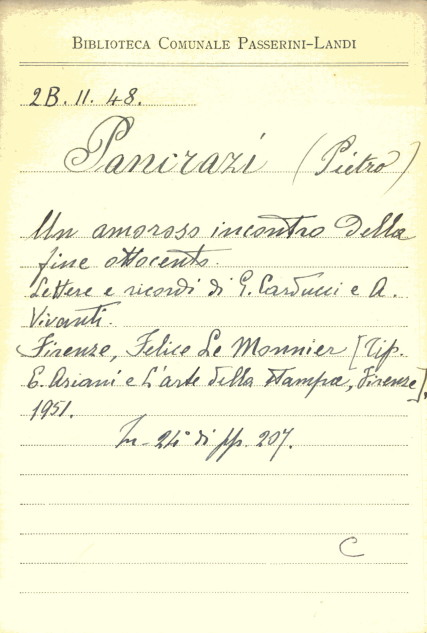 BIBLIOTECA COMUNALE PASSERINI-LANDI
2B. 11. 48.
Pancrazi (Pietro)
Un amoroso incontro della
fine ottocento.
Lettere e ricordi di G. Carducci e A.
Vivanti.
Firenze, Felice Le Monnier [Tip.
E. Ariani e L'arte della stampa, Firenze],
1951.
In-24° di pp. 207.
C